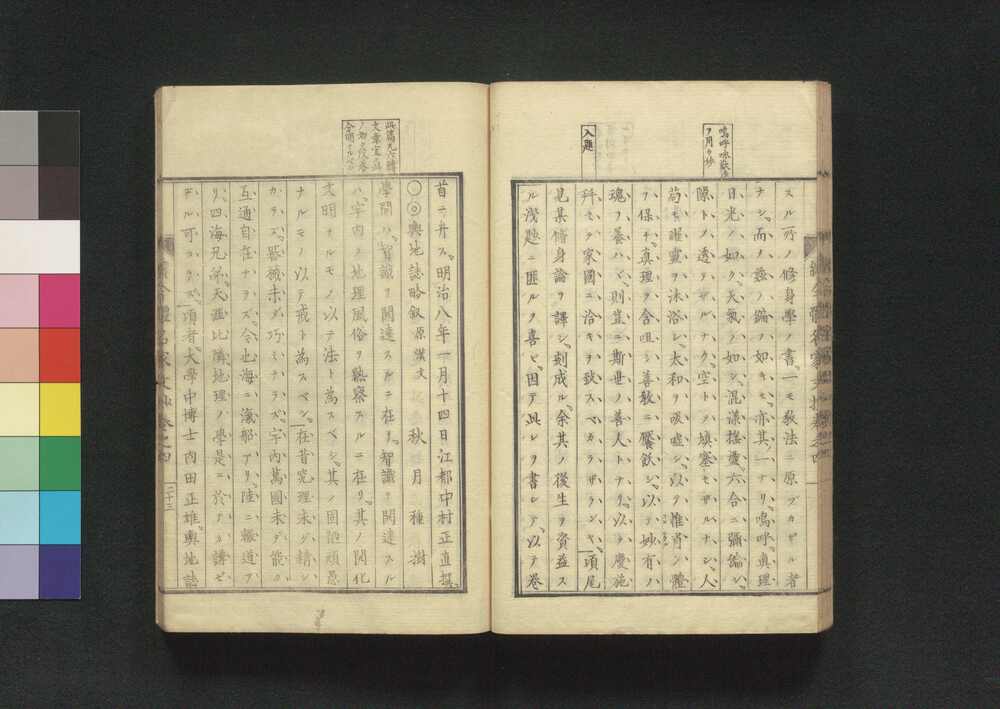 嗚呼咏歎
ヲ用ヒ妙
入題
スル所ノ修身學ノ書。一モ敎法ニ原ヅカザル者
ナシ。而ノ茲ノ論ノ如キモ。亦其一ナリ。嗚呼。眞理
日光ノ如ク。天氣ノ如シ。混漾搖蕩。六合ニ彌綸シ。
隙トノ透ラザルナク。空トノ塡塞セザルナシ。人
苟モ曜靈ヲ沐浴シ。太和ヲ吸嘘シ。以テ惟斉シ體
ヲ保チ。眞理ヲ含咀シ。善敎ニ饜飫シ。以テ妙有ハ
魂ヲ養ハヾ。則豈ニ斯世ノ善人トナリ。以テ慶施
科モヲ家國ニ洽キヲ致スベカラザランヤ。頃尾
見某脩身論ヲ譯シ。刻成ル。余其ノ後生ヲ資益ス
ル淺題ニ匪ルヲ喜ビ。因テ此レヲ書レテ。以テ卷
此篇
文章
首ニ弁ス。明治八年一月十四日江都中村正直撰
〇◎輿地誌略叙 原漢文 秋月種樹
學問ハ。智識ヲ開達スルニ在リ。智識ヲ開達スル
ハ。宇内ノ地理風俗ヲ熟察スルニ在リ。其ノ開化
文明ナルモノ以テ法ト爲スベシ。其ノ固陋頑愚
ナルモノ以テ戒ト爲スベシ。在昔究理未ダ精シ
カラズ。器械未ダ巧ミナラズ。宇内萬國未ダ能ク
互通自在ナラズ。今也海ニ滊船アリ。陸ニ轍道ア
リ。四海兄弟。天涯比隣。地理ノ學是ニ於テカ講ゼ
ザル可ラズ。頃者。大學中博士内田正雄。輿地誌
二十三